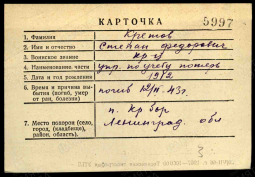 КАРТОЧКА
5997
1. Фамилия Кретов
2. Имя и отчество Степан Федорович
3. Воинское звание кр-ц
4. Наименование части упр. по учету потерь
5. Дата и год рождения 1912
6. Время и причина выбытия (погиб, умер от ран, болезни) погиб 12/II-43г.
7. Место похорон (село, город, (кладбище), район, область). п. Кр Бор
Ленинград. обл
3